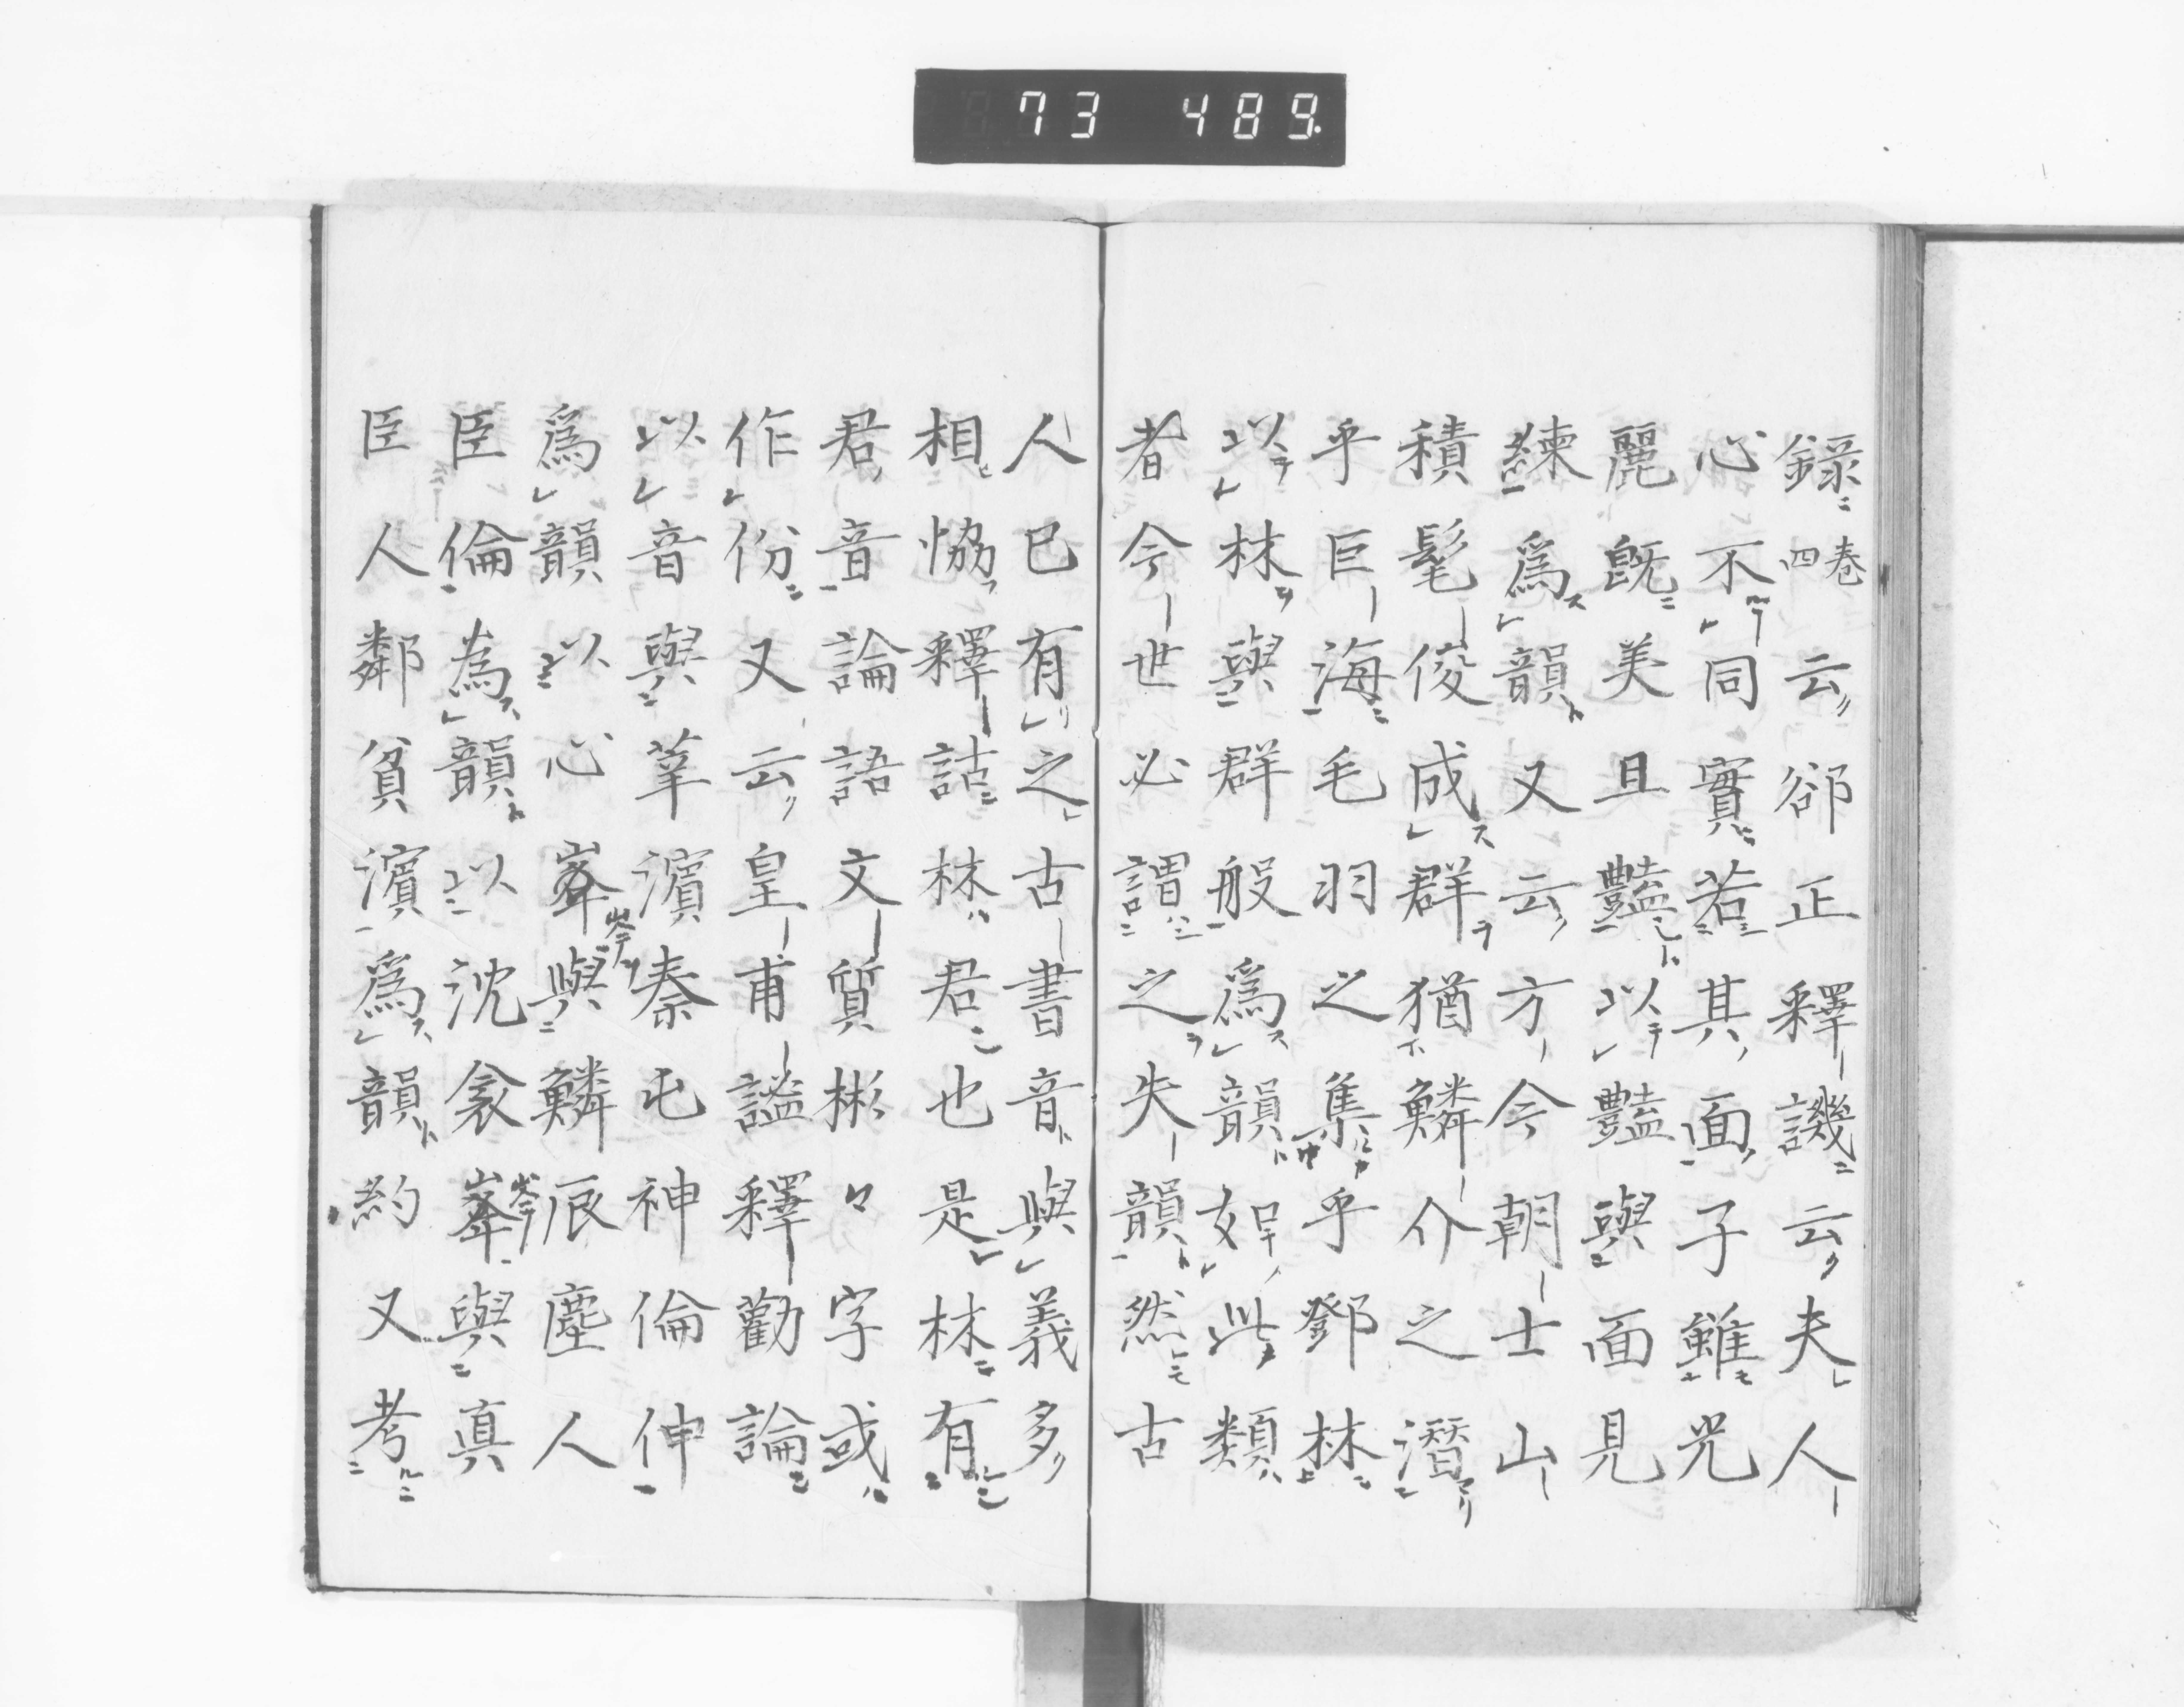 73 489.
錄四卷云郤正釋譏云夫人
心不同實若其面子雖光
麗既美且豔以豔與面見
練為韻又云方今朝士山
積髦俊成群猶鱗介之潛
乎巨海毛羽之集乎鄧林
以林與群般為韻如此類
者今世必謂之失韻然古
人已有之古書音與義多
相協釋詁林君也是林有
君音論語文質彬々字或
作份又云皇甫謐釋勸論
以音與莘濱秦屯神倫伸
為韻以心岑與鱗辰塵人
臣倫為韻以沈衾岑與真
臣人鄰貧濱為韻約又考